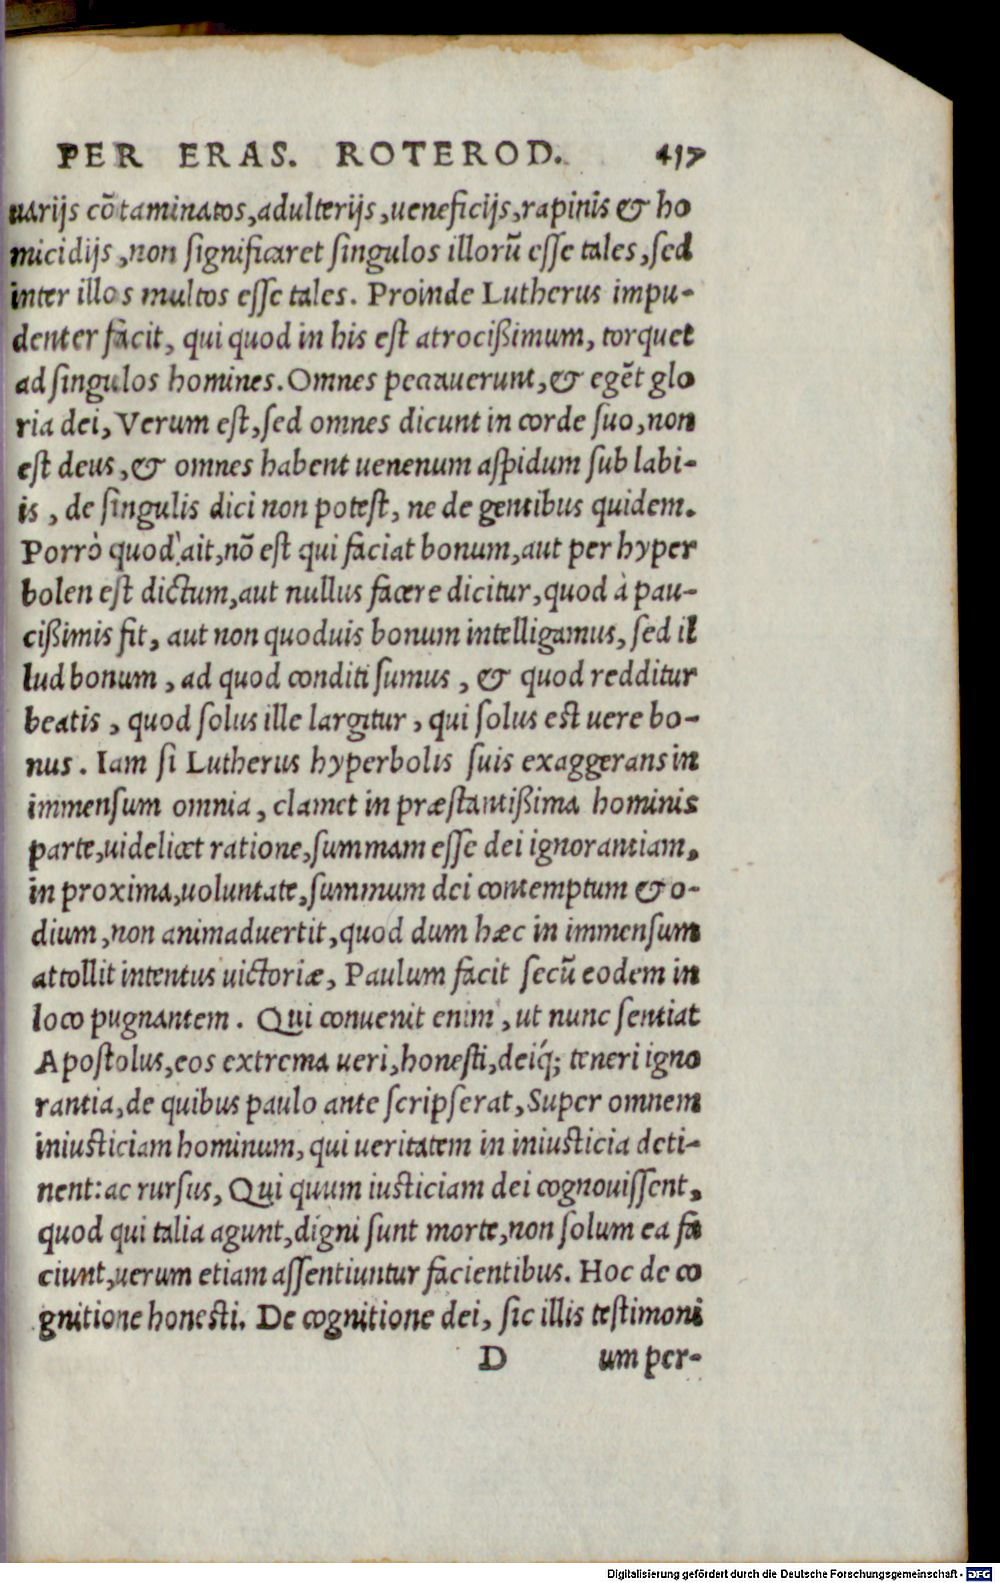 PER ERAS. ROTEROD. 417
uarijs cõtaminatos,adulterijs,ueneficijs,rapinis & ho
micidijs,non significaret singulos illorũ esse tales,sed
inter illos multos esse tales. Proinde Lutherus impu-
denter facit, qui quod in his est atrocißimum, torquet
ad singulos homines.Omnes peccauerunt,& egẽt glo
ria dei, Verum est,sed omnes dicunt in corde suo,non
est deus,& omnes habent uenenum aspidum sub labi-
is, de singulis dici non potest, ne de gentibus quidem.
Porrò quod ait,nõ est qui faciat bonum,aut per hyper
bolen est dictum,aut nullus facere dicitur,quod à pau-
cißimis fit, aut non quoduis bonum intelligamus, sed il
lud bonum, ad quod conditi sumus, & quod redditur
beatis, quod solus ille largitur, qui solus est uere bo-
nus. Iam si Lutherus hyperbolis suis exaggerans in
immensum omnia, clamet in præstantißima hominis
parte,uidelicet ratione,summam esse dei ignorantiam,
in proxima,uoluntate,summum dei contemptum & o-
dium,non animaduertit,quod dum hæc in immensum
attollit intentus uictoriæ, Paulum facit secũ eodem in
loco pugnantem. Qui conuenit enim, ut nunc sentiat
Apostolus,eos extrema ueri,honesti,deiq́; teneri igno
rantia,de quibus paulo ante scripserat, Super omnem
iniusticiam hominum, qui ueritatem in iniusticia deti-
nent: ac rursus, Qui quum iusticiam dei cognouissent,
quod qui talia agunt,digni sunt morte,non solum ea fa
ciunt,uerum etiam assentiuntur facientibus. Hoc de co
gnitione honesti. De cognitione dei, sic illis testimoni
D um per-
Digitalisierung gefördert durch die Deutsche Forschungsgemeinschaft - DFG